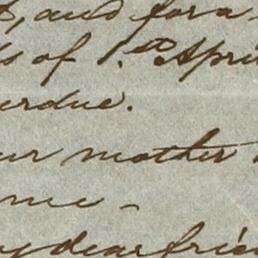 , and for a
s of 1.st Apri
erdue.
ur mother
me -
y dear frie